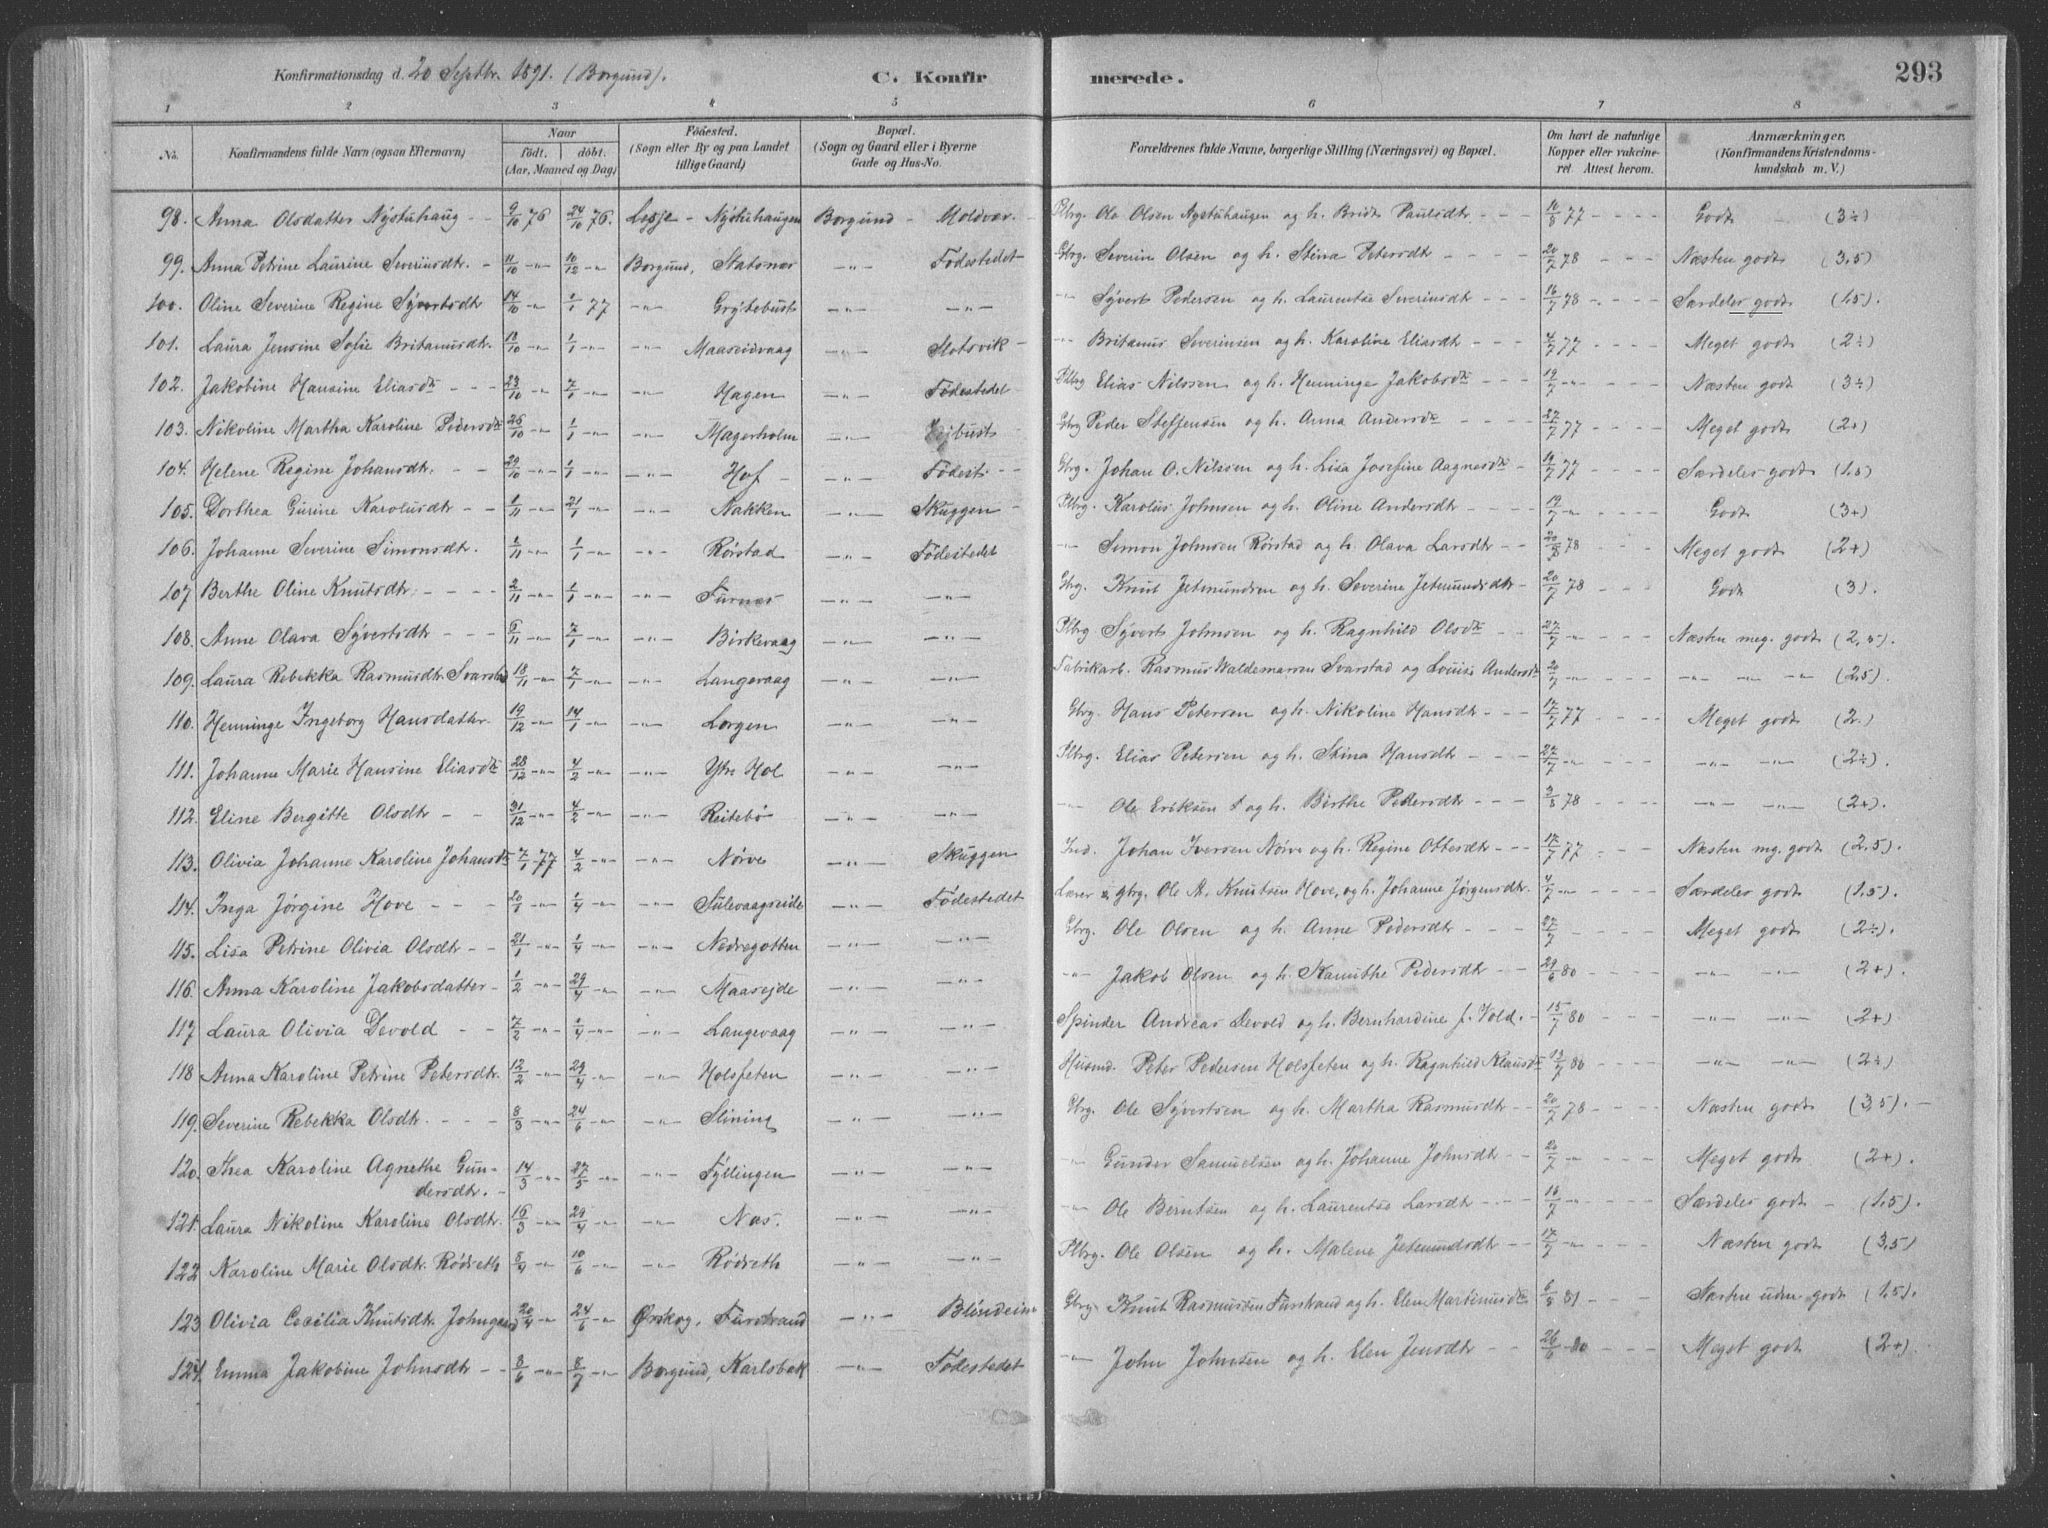 Konfirmationsdag d. 20 Septbr. 1891. (Borgund). C. Konfirmerede. 293
1 2 3 4 5 6 7 8
No. Konfirmandens fulde Navn (ogsaa Efternavn) Naar født. døbt. (Aar, Maaned og Dag) Fødested. (Sogn eller By og paa Landet tillige Gaard) Bopæl. (Sogn og Gaard eller i Byerne Gade og Hus-No. Forældrenes fulde Navne, borgerlige Stilling (Næringsvei) og Bopæl. Om havt de naturlige Kopper eller vakcineret Attest herom. Anmærkninger. (Konfirmandens Kristendomskundskab m. V.)
98. Anna Olsdatter Nystuhaug - - 9/10 76 24/10 76. Lesje - Nystuhaugen Borgund - Moldvær - Plbrg. Ole Olsen Nystuhaugen og h. Bridt Paulsdtr 10/8 77 - - - - Godt - (3÷)
99. Anna Petrine Laurine Severinsdtr. - 11/10 -"- 10/12 -"- Borgund, Statsnes -"- Fødestedet Gbrg. Severin Olsen og h. Stina Petersdtr - - - - 20/7 78 - - - Næsten godt (3,5)
100. Oline Severine Regine Syvertsdtr 14/10 -"- 1/1 77 -"- Grytebust -"- -"- " Syvert Pedersen og h. Laurentse Severinsdtr - - - 16/7 78 - - - Særdeles godt (1,5).
101. Laura Jensine Sofie Britanusdtr. 18/10 -"- 1/1 -"- -"- Maaseidvaag -"- Slotsvik " Britanus Severinsen og h. Karoline Eliasdtr - - - 4/7 77 - - - - Meget godt (2÷)
102. Jakobine Hansine Eliasdtr - - - 23/10 -"- 7/1 -"- -"- Hagen -"- Fødestedet Plbrg Elias Nilssen og h. Henninge Jakobsdtr - - - 19/7 -"- - - - Næsten godt (3÷)
103. Nikoline Martha Karoline Pedersdtr 26/10 -"- 1/1 -"- -"- Magerholm -"- Gbrg Peder Steffensen og h. Anna Andersdtr - - - - 27/7 77 - - - - Meget godt (2+)
104. Helene Regine Johansdtr. - - 29/10 -"- 1/1 -"- -"- Hof - -"- Fødest. - - Gbrg. Johan O. Nilssen og h. Lisa Josefine Aagnesdtr - 19/7 77 - - - - Særdeles godt (1,5)
105. Dorthea Gurine Karolusdtr - - 1/11 -"- 21/1 -"- -"- Nakken -"- Skuggen - Plbrg. Karolus Johnsen og h. Oline Andersdtr - - - - 19/7 -"- - - - - Godt (3+)
106. Johanne Severine Simonsdtr. 1/11 -"- 1/1 -"- -"- Rørstad -"- Fødestedet " Simon Johnsen Rørstad og h. Olava Larsdtr - - 20/8 78 - - - - Meget godt (2+)
107 Berthe Oline Knutsdtr. - - - - 2/11 -"- 1/1 -"- -"- Furnes -"- -"- Gbrg. Knut Jetmundsen og h. Severine Jetmundsdtr - 20/7 78 - - - Godt (3).
108. Anne Olava Syvertsdtr - - - 6/11 -"- 7/1 -"- -"- Birkevaag -"- -"- Plbrg Syvert Johnsen og h. Ragnhild Olsdtr - - - 27/7 -"- - - - Næsten meg. godt (2,5).
109. Laura Rebekka Rasmusdtr. Svarstad 18/11 -"- 7/1 -"- -"- Langevaag -"- -"- Fabrikarb. Rasmus Waldemarren Svarstad og Louise Andersdtr 20/7 -"- - - - -"- -"- -"- (2,5).
110. Henninge Ingeborg Hansdatter. 19/12 -"- 14/1 -"- -"- Lorgen -"- -"- Gbrg. Hans Petersen og h. Nikoline Hansdtr - - - 17/7 77 - - - - Meget godt (2.)
111. Johanne Marie Hansine Eliasdtr 28/12 -"- 4/2 -"- -"- Ytre Hol -"- -"- Plbrg. Elias Petersen og h. Stina Hansdtr - - - - 27/7 -"- - - - -"- -"- (2÷).
112. Eline Bergitte Olsdtr - - 31/12 -"- 4/2 -"- -"- Reitebø -"- -"- " Ole Eriksen † og h. Birthe Pedersdtr - - - 3/8 78 - - - - -"- -"- (2+).
113. Olivia Johanne Karoline Johansdtr 7/1 77 4/2 -"- -"- Nørve -"- Skuggen Ind. Johan Iversen Nørve og h. Regine Ottersdtr - - 17/7 77 - - - Næsten mg. godt (2,5).
114. Inga Jørgine Hove - - - 20/1 -"- 1/4 -"- -"- Sulevaagseide -"- Fødestedet Lærer & gbrg. Ole A. Knutsen Hove, og h. Johanne Jørgensdtr. 4/7 -"- - - - Særdeles godt (1,5).
115. Lisa Petrine Olivia Olsdtr - - 21/1 -"- 1/4 -"- -"- Nedregotten -"- -"- Gbrg. Ole Olsen og h. Anne Pedersdtr - - - 27/7 - - - - Meget godt (2÷).
116. Anna Karoline Jakobsdatter - 1/2 -"- 29/4 -"- -"- Maasejde -"- -"- -"- Jakob Olsen og h. Kanuthe Pedersdtr - - 29/6 80 - - - - -"- -"- (2+).
117 Laura Olivia Devold - - 7/2 -"- 1/4 -"- -"- Langevaag -"- -"- Spinder Andreas Devold og h. Bernhardine J. Vold. - 15/7 80 - - - -"- -"- (2+)
118 Anna Karoline Petrine Petersdtr. 12/2 -"- 29/4 -"- -"- Holsfeten -"- -"- Husmd. Peter Pedersen Holsfeten og h. Ragnhild Klausdtr 13/7 80 - - - -"- -"- (2÷)
119. Severine Rebekka Olsdtr. - - - 8/3 -"- 24/6 -"- -"- Slining -"- -"- Gbrg. Ole Syvertsen og h. Martha Rasmusdtr - - 20/7 78 - - - - Næsten godt (3,5). -
120. Thea Karoline Agnethe Gun- 14/3 -"- 27/5 -"- -"- Fyllingen -"- -"- " Gunder Samuelsen og h. Johanne Johnsdtr - - 20/7 -"- - - - Meget godt (2+).
dersdtr. -
121. Laura Nikoline Karoline Olsdtr. 16/3 -"- 29/4 -"- -"- Næs. -"- -"- -"- Ole Berntsen og h. Laurentse Larsdtr - - - 16/7 -"- - - - - Særdeles godt - (1,5).
122 Karoline Marie Olsdtr. Rødseth 5/4 -"- 10/6 -"- -"- Rødseth -"- -"- Plbrg. Ole Olsen og h. Malene Jetmundsdtr - - - 17/7 -"- - - - Næsten godt (3,5)
123 Olivia Cecilia Knutsdtr. Johngard 20/4 -"- 24/6 -"- Ørskog, Furstrand -"- Blindeim Gbrg. Knut Rasmussen Furstrand og h. Elen Martinusdtr 6/8 81 - - - godt (1,5).
124. Emma Jakobine Johnsdtr - - 8/6 -"- 8/7 -"- Borgund, Karlsbak -"- Fødestedet -"- John Johnsen og h. Elen Jensdtr - - - 26/6 80 - - - Meget godt (2+)